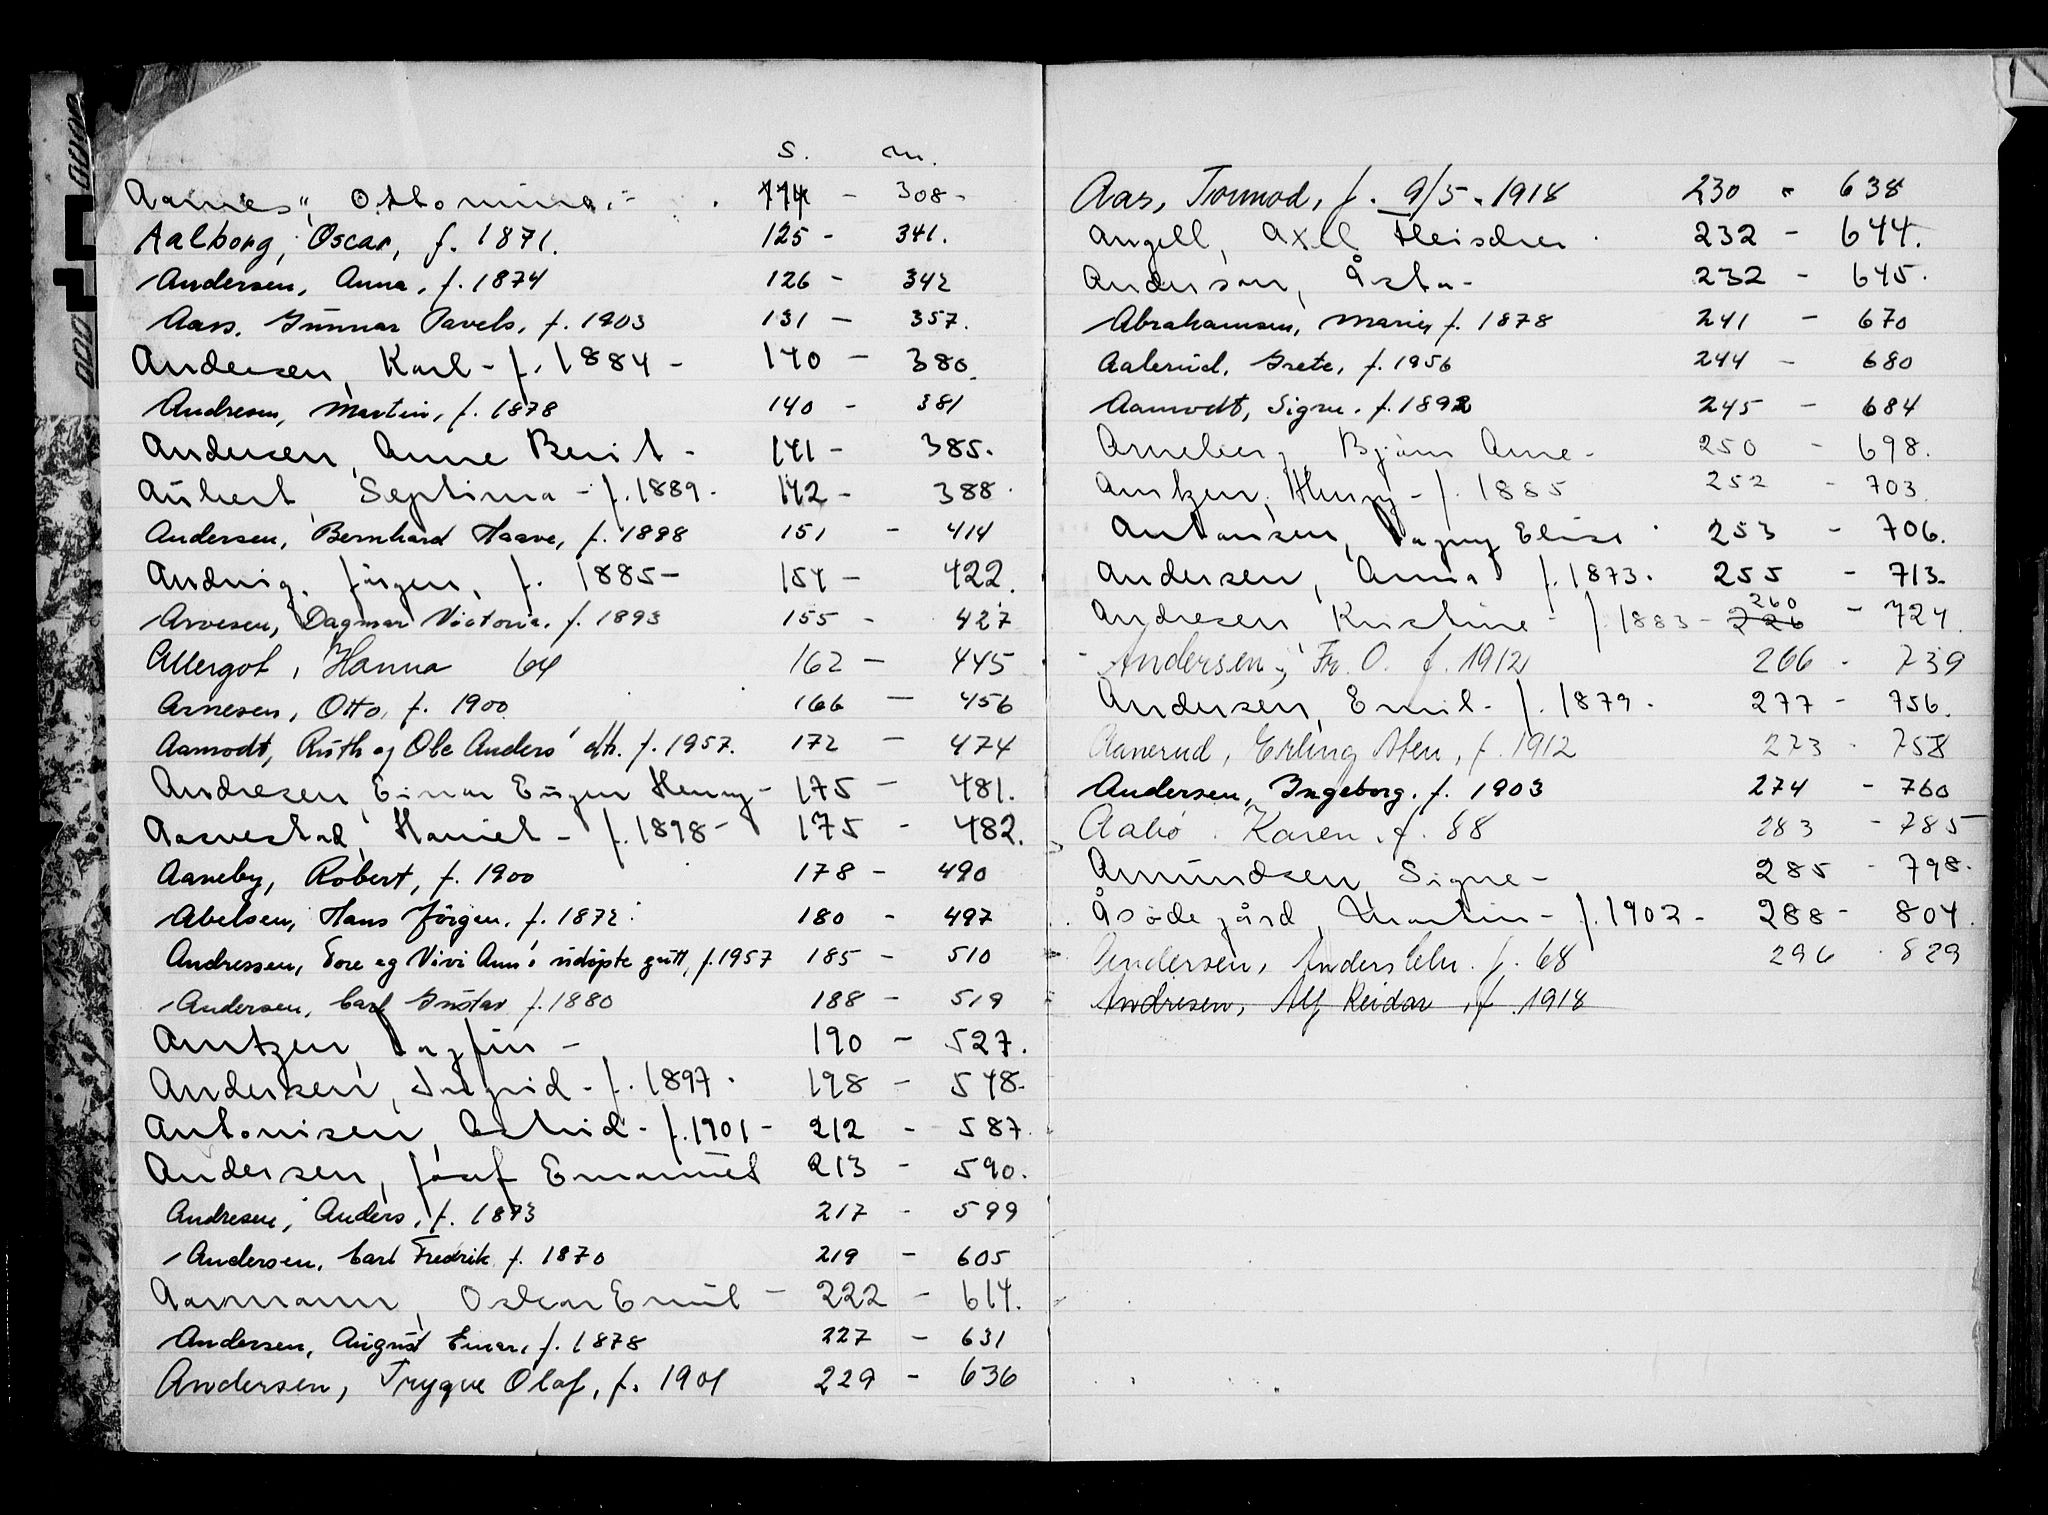 s. m.
Aarnes, Ottomina, - 114 - 308 -
Aalborg, Oscar, f. 1871. 125 - 341.
Andersen, Anna, f. 1874 126 - 342
Aars, Gunnar Pavels, f. 1903 131 - 357.
Andersen, Karl - f. 1884 - 140 - 380.
Andresen, Martin, f. 1878 140 - 381
Andersen, Anne Berit - 141 - 385.
Aubert, Septima - f. 1889. 142 - 388.
Andersen, Bernhard Haave, f. 1898 151 - 414
Andvig, Jørgen, f. 1885 - 154 - 422.
Arvesen, Dagmar Victoria, f. 1893 155 - 427
Allergot, Hanna 64 162 - 445
Arnesen, Otto, f. 1900 166 - 456
Aamodt, Ruth og Ole Anders' dth. f. 1957. 172 - 474
Andresen, Einar Eugen Henry - 175 - 481.
Aasvestad, Haniel - f. 1898 - 175 - 482.
Aaneby, Robert, f. 1900 178 - 490
Abelsen, Hans Jörgen, f. 1872. 180 - 497
Andressen, Tore og Vivi Ann's udøpte gutt, f. 1957 185 - 510
Andersen, Carl Gustav f. 1880 188 - 519
Arntzen, Dagfin - 190 - 527.
Andersen, Ingrid - f. 1897. 198 - 548.
Antonisen, Astrid - f. 1901 - 212 - 587.
Andersen, Josef Emanuel 213 - 590.
Andresen, Anders, f. 1873 217 - 599
Andersen, Carl Fredrik f. 1870 219 - 605
Aarmann, Oskar Emil - 222 - 614.
Andersen, August Einar, f. 1878 227 - 631
Andersen, Trygve Olaf, f. 1901 229 - 636
Aas, Tormod, f. 9/5. 1918 230 - 638
Angell, Axel Fleischer. 232 - 644.
Anderson, Åsta - 232 - 645.
Abrahamsen, Marie, f. 1878 241 - 670
Aalerud, Grete, f. 1956 244 - 680
Aamodt, Signe, f. 1892 245 - 684
Arneberg, Bjørn Arne - 250 - 698.
Arntzen, Henry - f. 1885 252 - 703.
Antonsen, Dagny Elise 253 - 706.
Andersen, Anna f. 1873. 255 - 713.
Andresen Kristine - f. 1883 - 226 260 - 724.
- Andersen, Fr. O. f. 1912 266 - 739
Andersen, Emil - f. 1879. 277 - 756.
Aanerud, Erling Sten, f. 1912 273 - 758
Andersen, Ingeborg, f. 1903 274 - 760
Aabø, Karen, f. 88 283 - 785
Amundsen, Signe - 285 - 798.
Åsødegård, Martin - f. 1902 - 288 - 804.
Andersen, Anders Chr. f. 68 296 - 829
Andresen, Alf Reidar, f. 1918